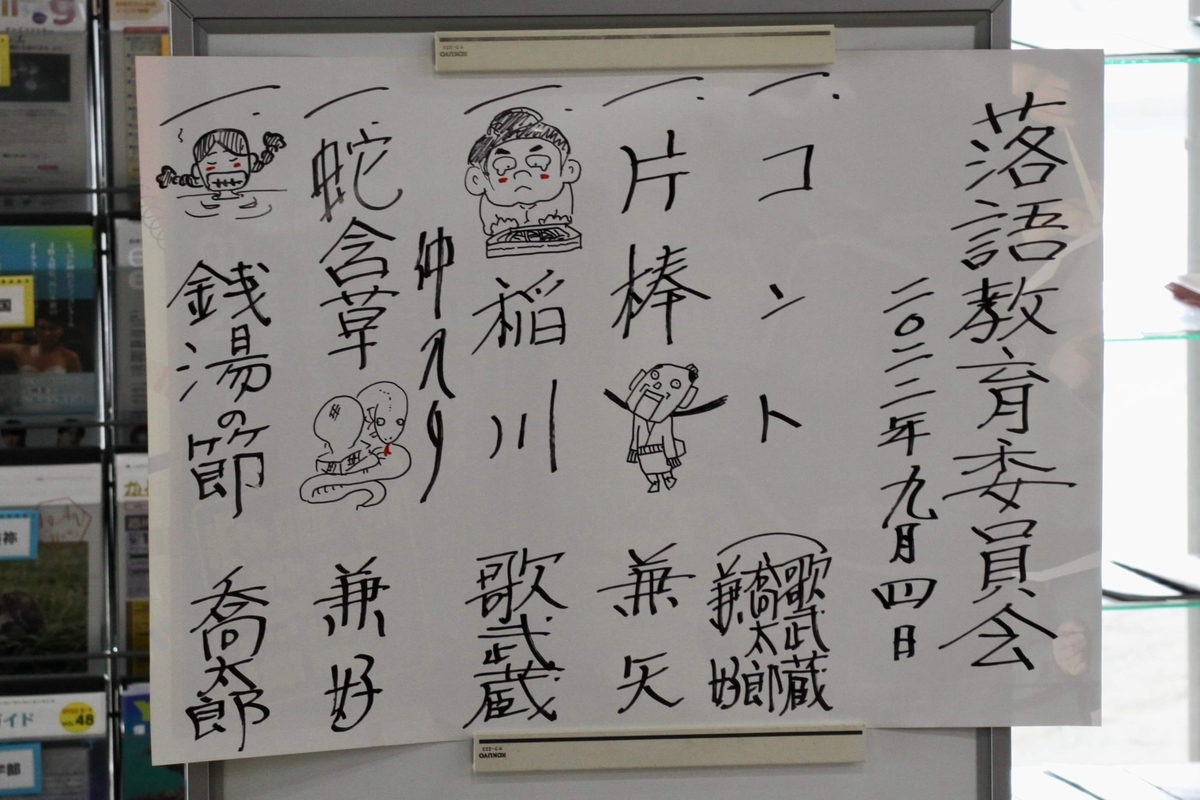 落語教育委員会
二〇二二年九月四日
一、コント
歌武蔵
喬太郎
兼好
一、片棒 兼矢
一、稲川 歌武蔵
仲入り
一、蛇含草 兼好
一、銭湯の節 喬太郎
KOKUYO
KOKUYO
ガイド
VOL.48